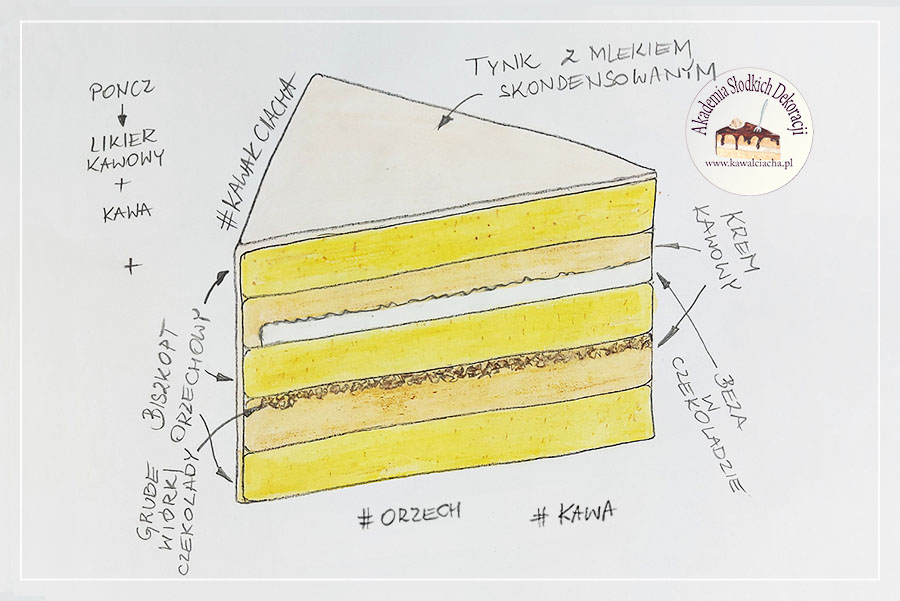 TYNK Z MLEKIEM
SKONDENSOWANYM
Akademia Słodkich Dekoracji
www.kawalciacha.pl
PONCZ
LIKIER
KAWOWY
+
KAWA
+
#KAWAŁCIACHA
KREM
KAWOWY
BEZA
W
CZEKOLADZIE
BISZKOPT
ORZECHOWY
GRUBE
WIÓRKI
CZEKOLADY
# ORZECH
# KAWA